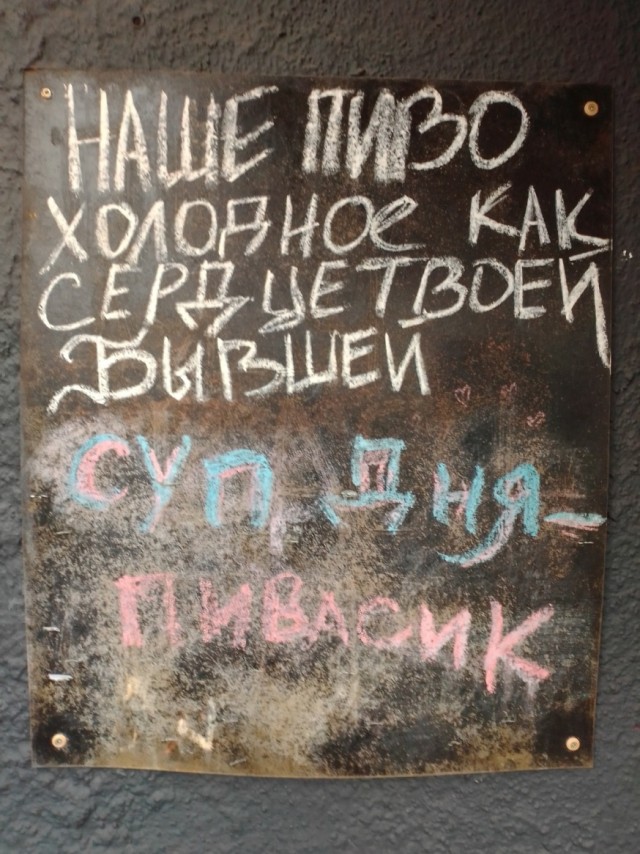 НАШЕ ПИВО
ХОЛОДНОЕ КАК
СЕРДЦЕ ТВОЕЙ
БЫВШЕЙ
СУП ДНЯ-
ПИВАСИК